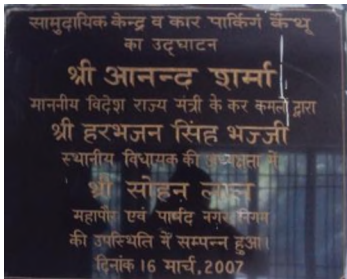 सामुदायिक केन्द्र व कार पार्किंग कैंथू
का उद्घाटन
श्री आनन्द शर्मा
माननीय विदेश राज्य मंत्री के कर कमलों द्वारा
श्री हरभजन सिंह भज्जी
स्थानीय विधायक की अध्यक्षता में
श्री सोहन लाल
महापौर एवं पार्षद नगर निगम
की उपस्थिति में सम्पन्न हुआ।
दिनांक 16 मार्च, 2007